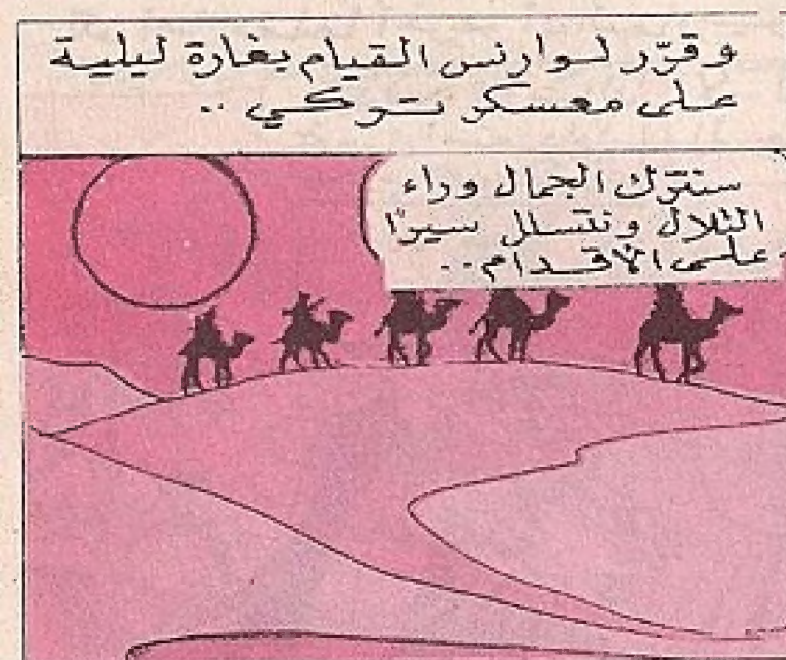 وقرّر لوارنس القيام بغارة ليلية
على معسكر تركي ..
سنترك الجمال وراء
التلال ونتسلل سيرًا
على الأقدام..